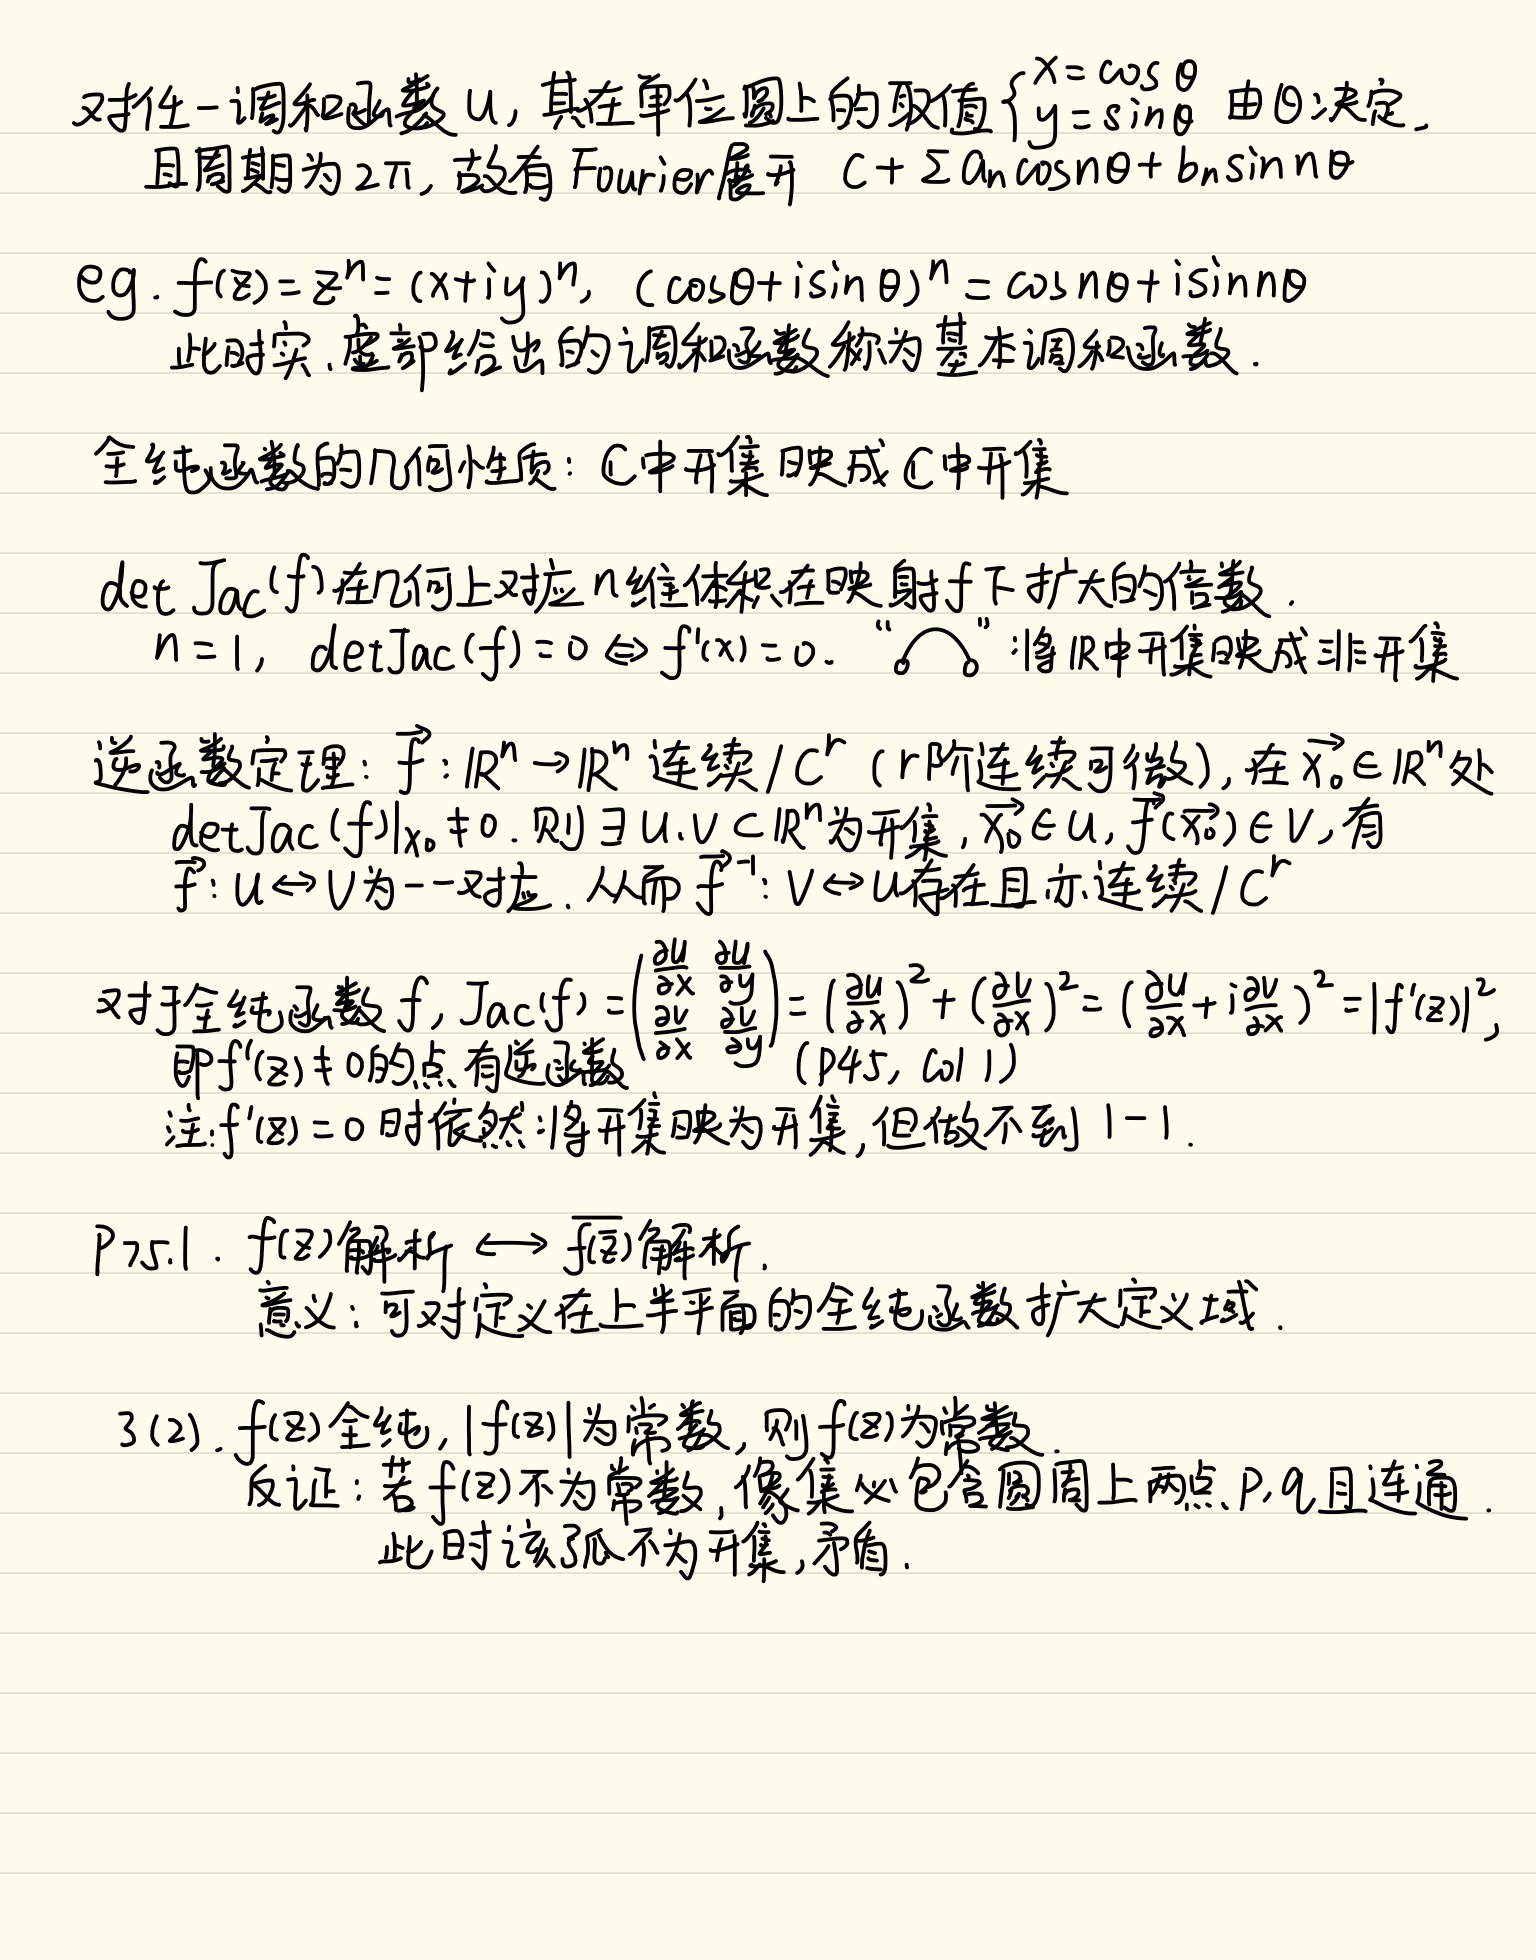 对任一调和函数 u, 其在单位圆上的取值 { x = cosθ y = sinθ 由θ决定.
且周期为2π, 故有 Fourier展开 C + Σ aₙcosnθ + bₙsin nθ
eg. f(z) = zⁿ = (x+iy)ⁿ, (cosθ+isinθ)ⁿ = cosnθ+isinnθ
此时实、虚部给出的调和函数称为基本调和函数.
全纯函数的几何性质: ℂ中开集映成ℂ中开集
det Jac(f)在几何上对应n维体积在映射f下扩大的倍数.
n = 1, detJac(f) = 0 ⇔ f'(x) = 0. “ ” :将ℝ中开集映成非开集
逆函数定理: f⃗ : ℝⁿ → ℝⁿ 连续/Cʳ (r阶连续可微), 在 x₀⃗ ∈ ℝⁿ处
detJac(f)|x₀ ≠ 0. 则∃U、V ⊂ ℝⁿ为开集, x₀⃗ ∈ U, f⃗(x₀⃗) ∈ V, 有
f⃗ : U ↔ V为一一对应. 从而 f⃗⁻¹ : V ↔ U存在且亦连续/Cʳ
对于全纯函数 f, Jac(f) = (∂u/∂x ∂u/∂y ∂v/∂x ∂v/∂y) = (∂u/∂x)² + (∂v/∂x)² = (∂u/∂x + i∂v/∂x)² = |f'(z)|²,
即f'(z) ≠ 0的点有逆函数 (P45, Col 1)
注: f'(z) = 0 时依然将开集映为开集, 但做不到 1-1.
P75.1. f(z)解析 ⟷ \overline{f(\overline{z})}解析.
意义: 可对定义在上半平面的全纯函数扩大定义域.
3(2). f(z)全纯, |f(z)|为常数, 则f(z)为常数.
反证: 若f(z)不为常数, 像集必包含圆周上两点p, q且连通.
此时该弧不为开集, 矛盾.